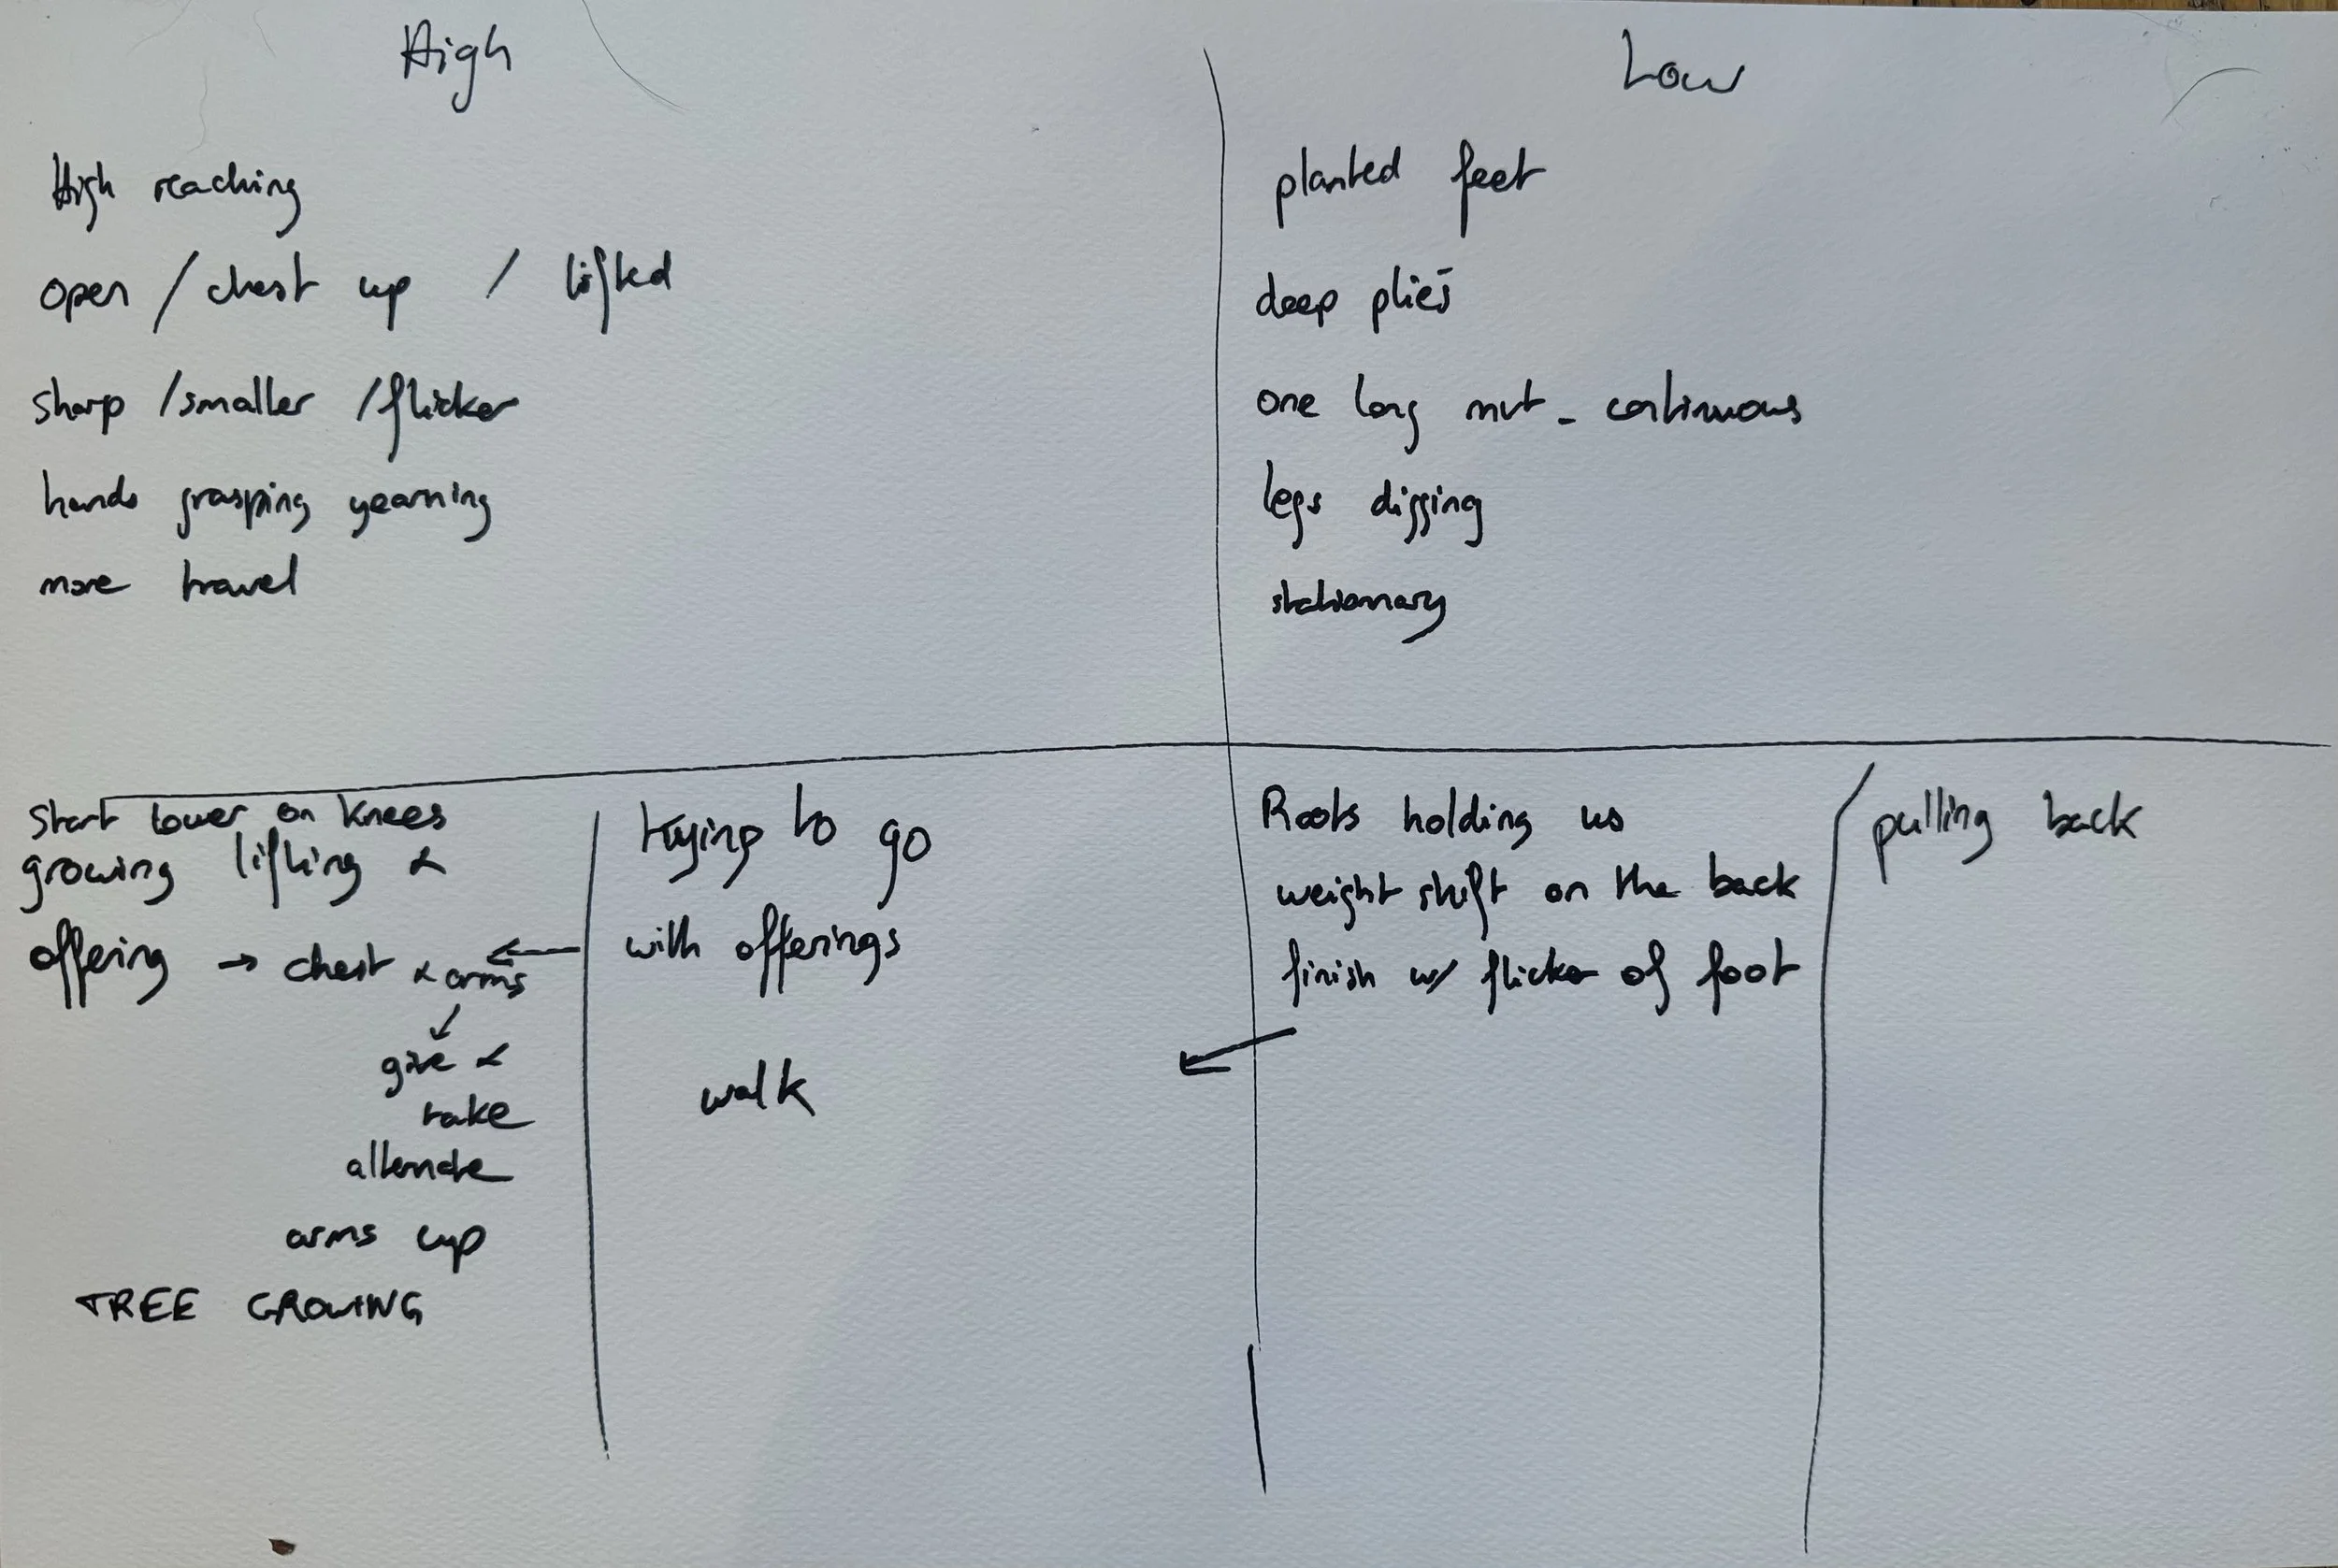 High
High reaching
open / chest up / lifted
sharp / smaller / flicker
hands grasping yearning
more travel
Low
planted feet
deep pliés
one long mvt - continuous
legs digging
stationary
Start lower on knees
growing lifting &
offering → chest & arms
↓
give &
take
alternate
arms up
TREE GROWING
trying to go
← with offerings
walk
Roots holding us
weight shift on the back
finish w/ flicker of foot
←
pulling back